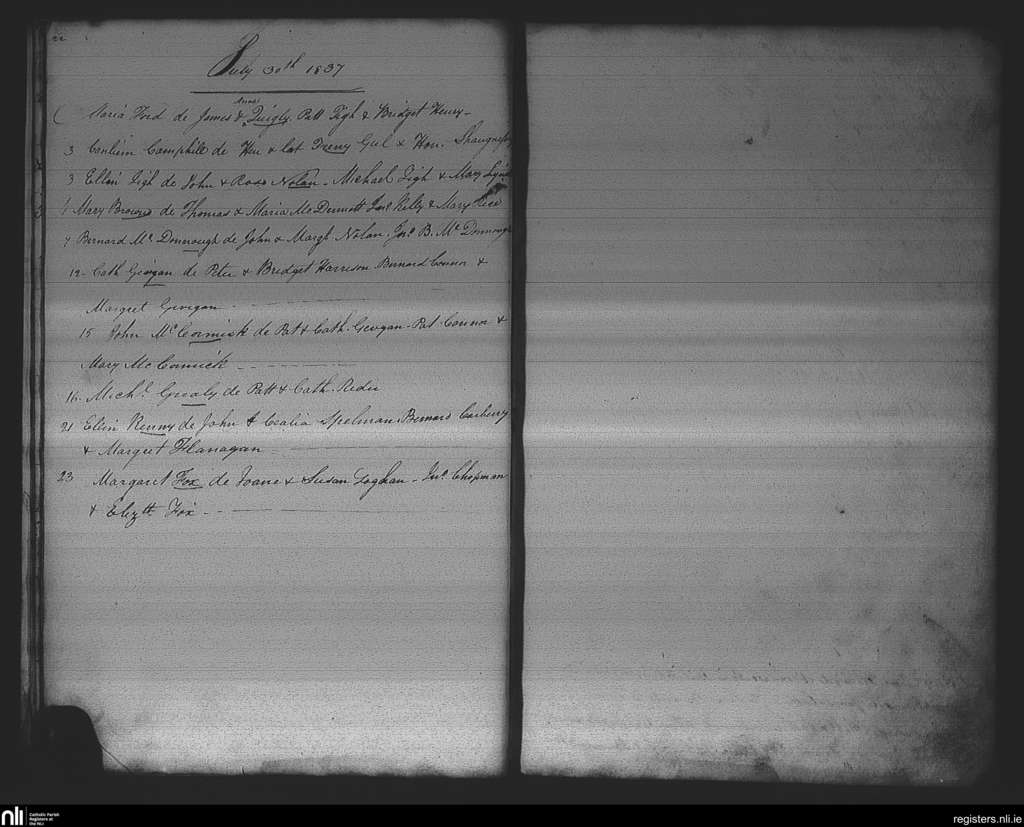 July 30th 1837
Maria Ford de James & Anne Quigly. Patt Tigh & Bridget Henry-
3 Camphill de Hen & Cat Gul & Hon. Shaugnessy
3 Ellen Tigh de John & Rose Nolan - Michael Tigh & Mary
4 Mary Browne de Thomas & Maria McDermott Jno. Kelly & Mary Rice
7 Bernard Mc Donnough de John & Margt. Nolan. Jno. B. Mc Donnough
12- Cath Gevigan de Peter & Bridget Harrison Bernard Connor &
Margret Gevigan
15 John McCormick de Pat & Cath. Gevigan - Pat Connor &
Mary McCormick
16. Michl. Grealy de Patt & Cath.
21 Elien Kenny de John & Cealia Spelman Bernard
& Margret Flanagan
23 Margaret Fox de & Susan - Jno. Chapman
& Elizth Fox
nli
Catholic Parish
Registers at
the NLI
registers.nli.ie